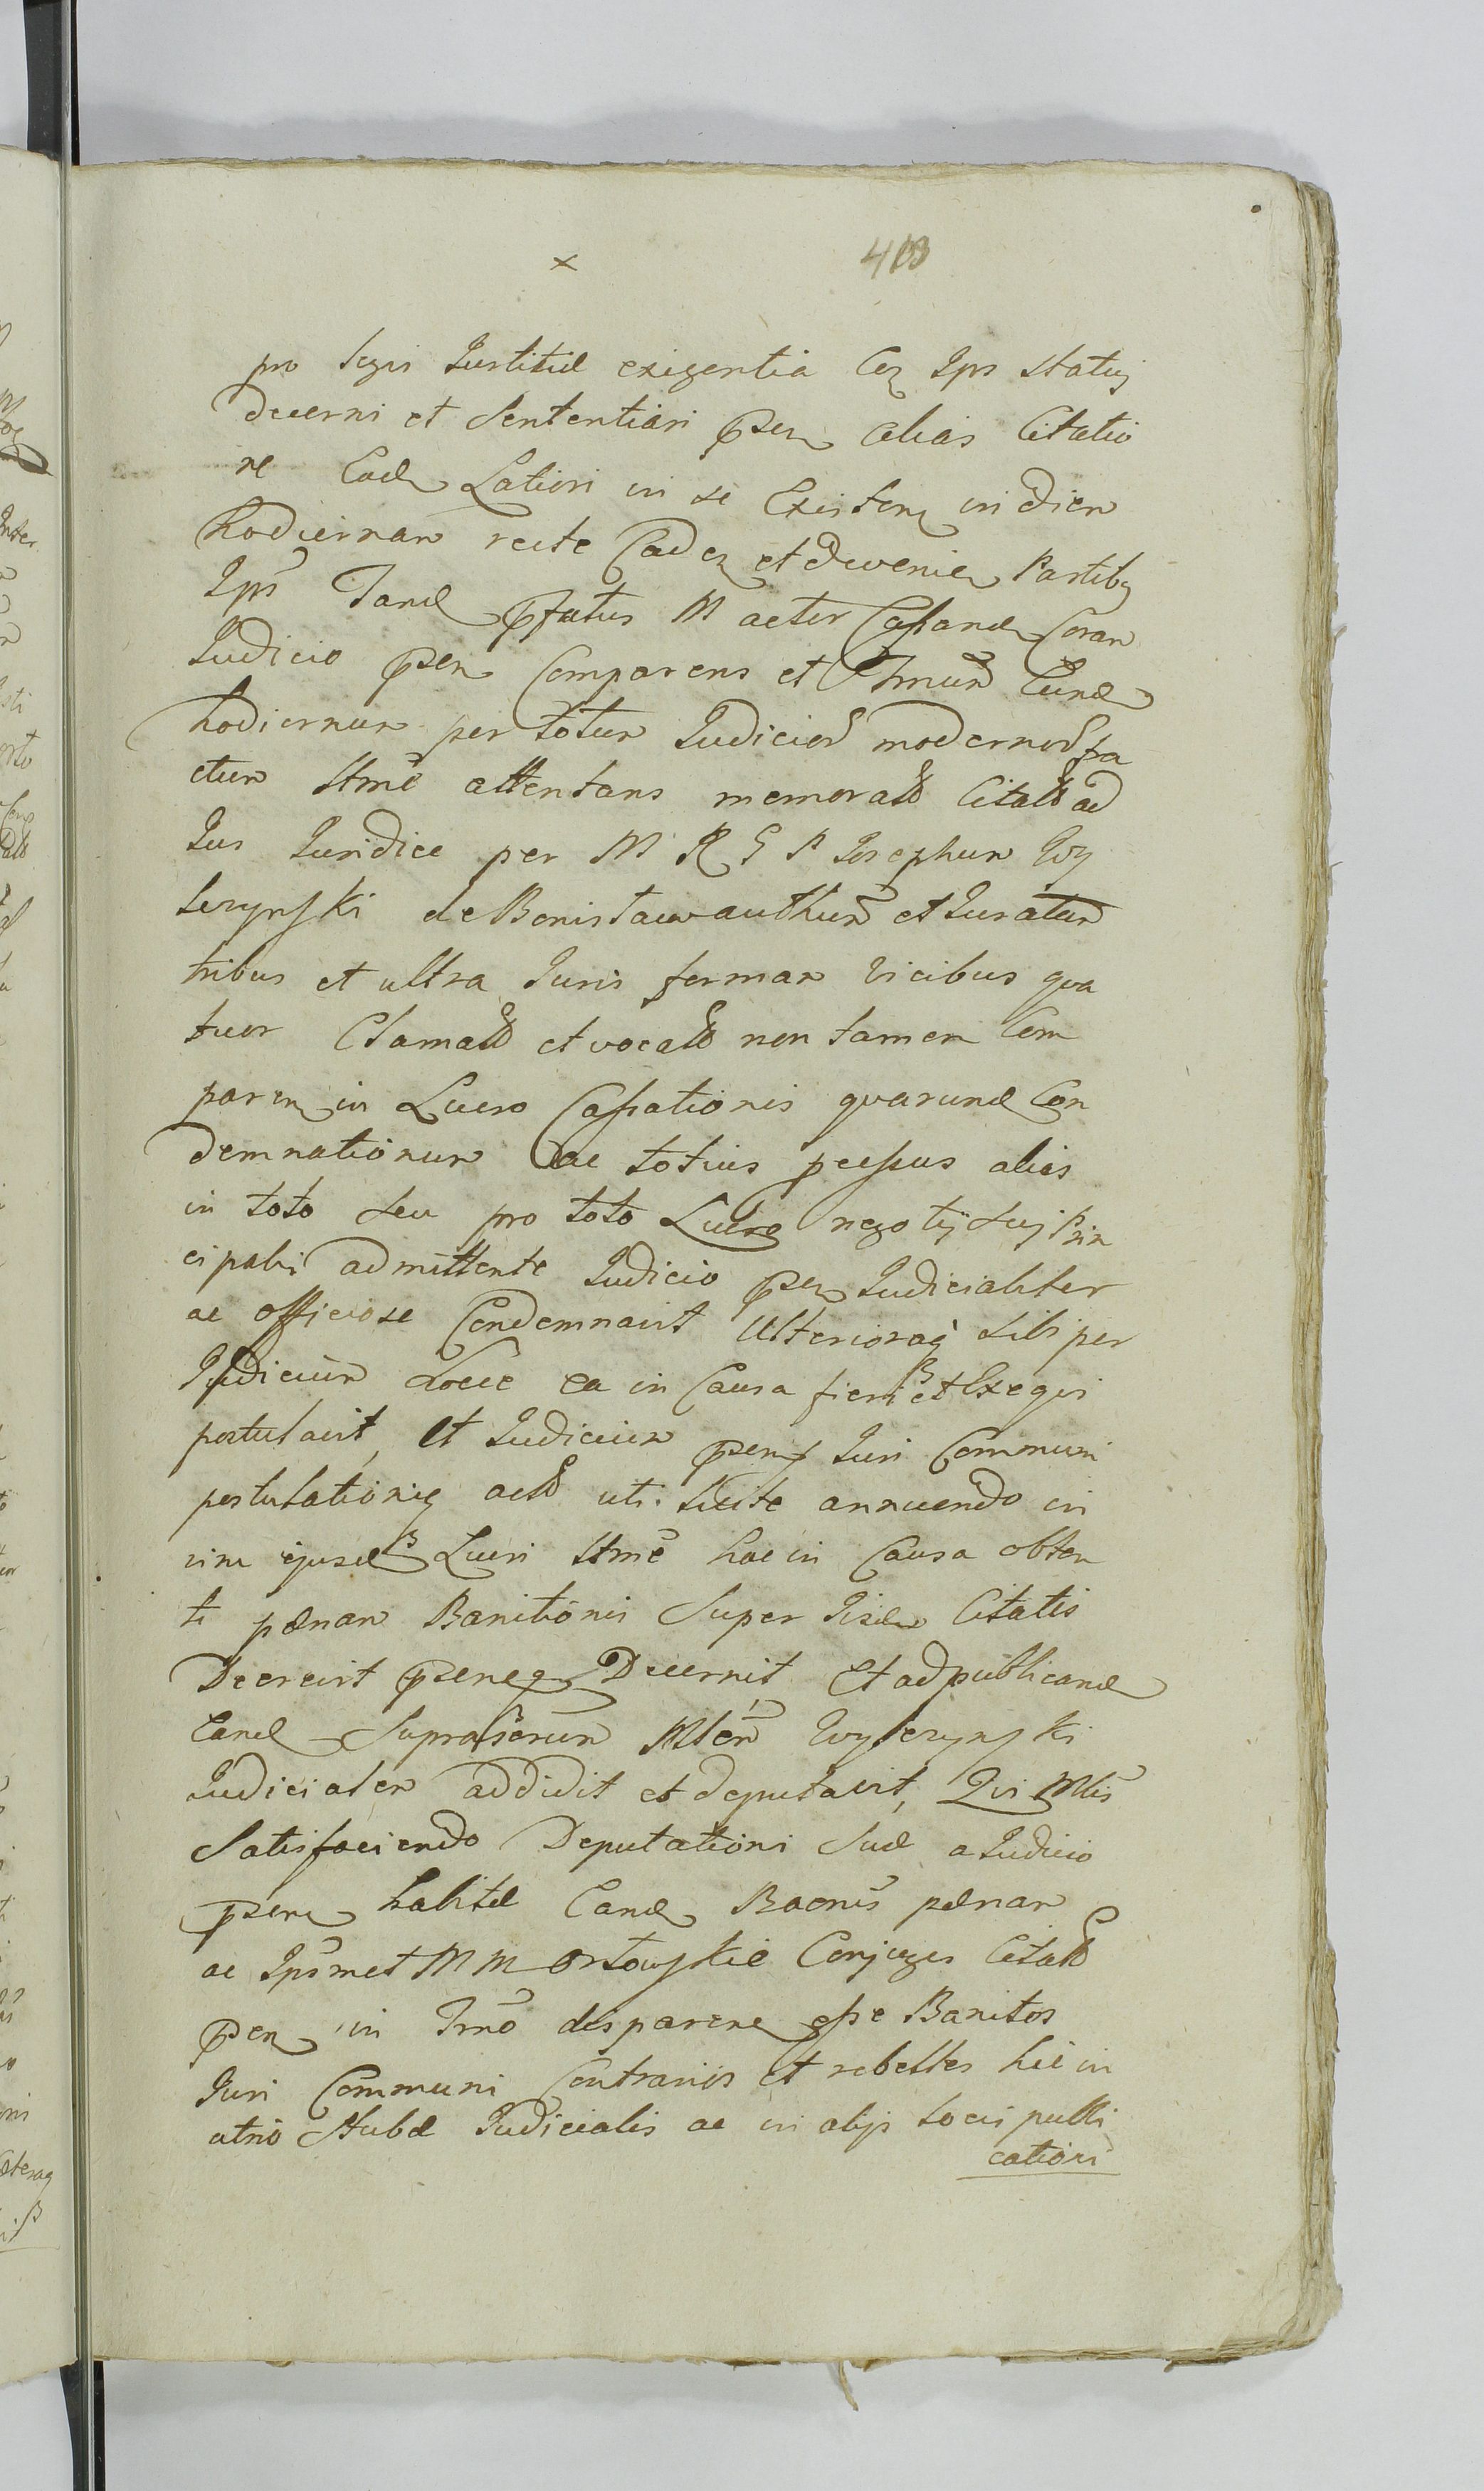 ×
413
pro legis Justitiæ exigentia Ceq Ips statuj
decerni et Sententiari pser alias Citatio
ne Ead Latiori in se Existen in diem
hodiernam recte Caden et devenien Partibq
Ips Tand pfatus M actor Cassand Coram
Judicio psen Comparens et Thmum Eund
hodiernum per totum Judicior modernor fa
ctum Stme attentans memorator Citator ad
Jus Juridice per M R G P Josephum Wy
lezynski de Bonisław authum et Juratum
tribus et ultra Juris formam vicibus qua
tuor Clamator et vocator non tamen Com
paren in Lucro Cassationis quarund Con
demnationum ac totius pcessus alias
in toto seu pro toto Lucro negotij suj Prin
cipali admittente Judicio psen Judicialiter
ac officiose Condemnavit Ulterioraq sibi per
Judicium docere ea in Causa fieri et Exequi
postulavit, Et Judicium psens Juri Communi
postulationiq actor uti. licite annuendo in
vim ejusd Lucri Stme hac in Causa obten
ti pænam Banitionis Super Iisdem Citatis
Decrevit pseneq Decernit Et ad publicand
Eand Suprascrum Mlem Wylezynski
Judicialem addidit et deputavit, Qui Mlis
Satisfaciendo Deputationi Suæ a Judicio
psen habitæ Eand Baonis pænam
ac Ipsmet M M Orłowskie Conjuges Citator
psen in Tmo disparene esse Banitos
Juri Communi Contrarios et rebelles hic in
atrio Stubæ Judicialis ac in alijs locis publi
cationi